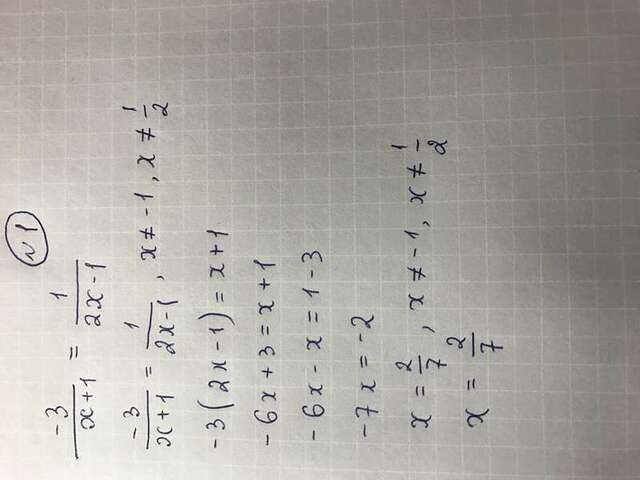 N1
-3/(x+1) = 1/(2x-1)
-3/(x+1) = 1/(2x-1), x ≠ -1, x ≠ 1/2
-3(2x-1) = x+1
-6x+3 = x+1
-6x-x = 1-3
-7x = -2
x = 2/7, x ≠ -1, x ≠ 1/2
x = 2/7